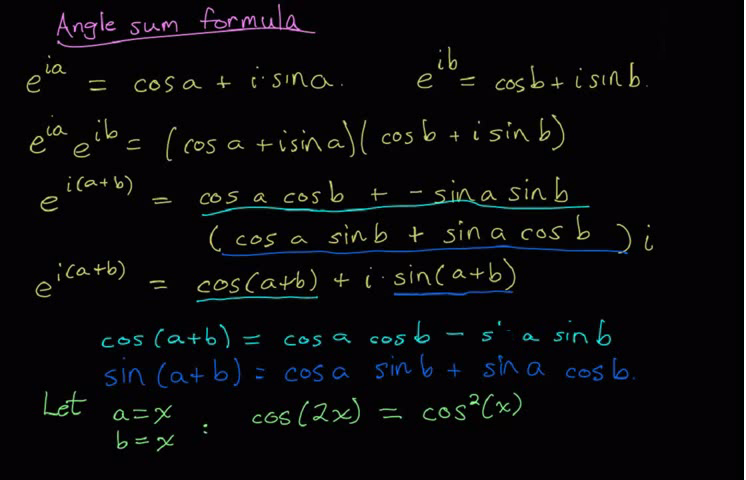 Angle sum formula
e^{ia} = cos a + i · sin a. e^{ib} = cos b + i sin b.
e^{ia} e^{ib} = (cos a + i sin a)(cos b + i sin b)
e^{i(a+b)} = cos a cos b + - sin a sin b
(cos a sin b + sin a cos b) i
e^{i(a+b)} = cos(a+b) + i · sin(a+b)
cos (a+b) = cos a cos b - s a sin b
sin (a+b) = cos a sin b + sin a cos b.
Let a = x : cos(2x) = cos²(x)
b = x